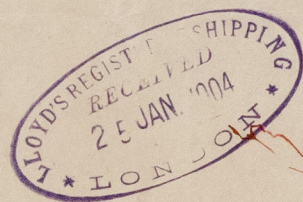 LLOYD'S REGIST SHIPPING
RECEIVED
25 JAN. 1904
LONDON